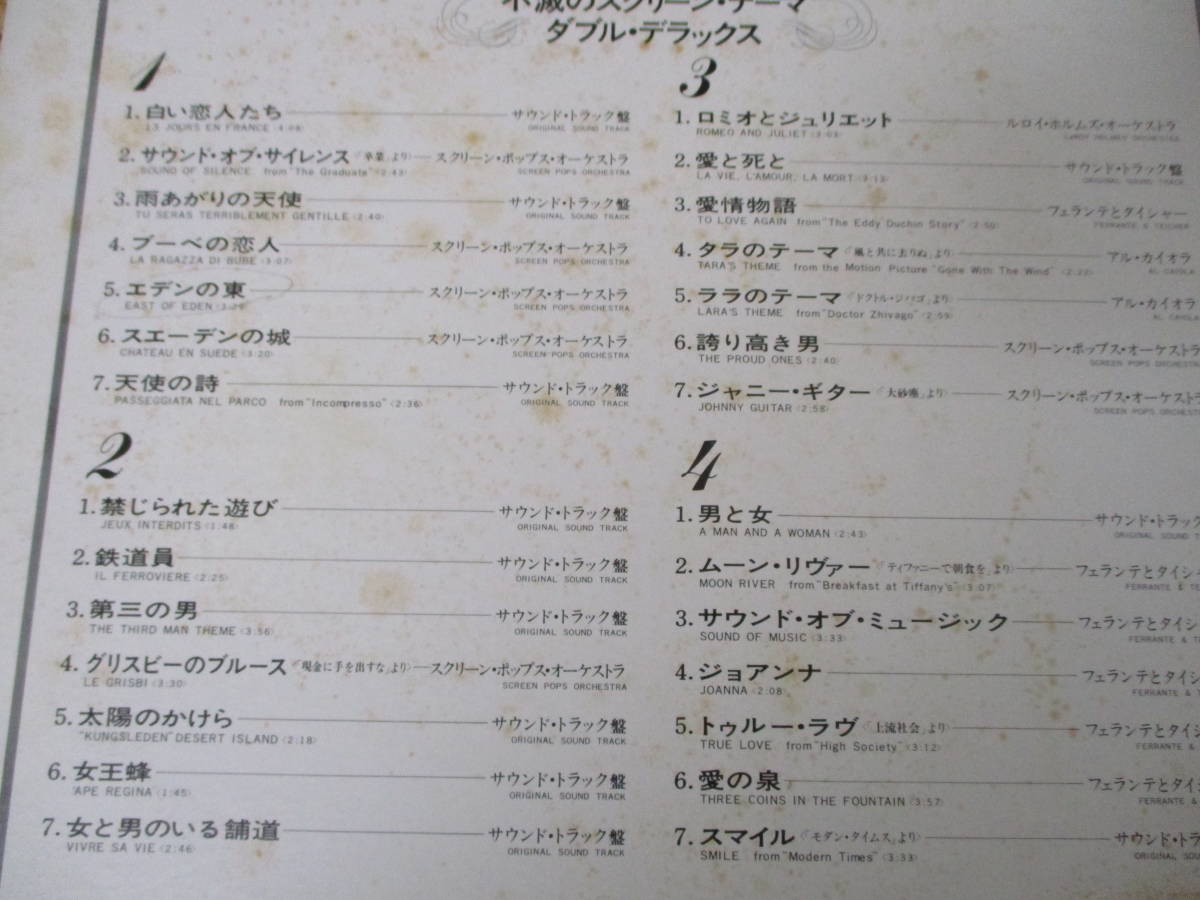 不滅のスクリーン・テーマ
ダブル・デラックス
1
1. 白い恋人たち サウンド・トラック盤
13 JOURS EN FRANCE〈4:08〉 ORIGINAL SOUND TRACK
2. サウンド・オブ・サイレンス〈「卒業」より〉 スクリーン・ポップス・オーケストラ
SOUND OF SILENCE from "The Graduate"〈2:43〉 SCREEN POPS ORCHESTRA
3. 雨あがりの天使 サウンド・トラック盤
TU SERAS TERRIBLEMENT GENTILLE〈2:40〉 ORIGINAL SOUND TRACK
4. ブーベの恋人 スクリーン・ポップス・オーケストラ
LA RAGAZZA DI BUBE〈3:07〉 SCREEN POPS ORCHESTRA
5. エデンの東 スクリーン・ポップス・オーケストラ
EAST OF EDEN SCREEN POPS ORCHESTRA
6. スエーデンの城 スクリーン・ポップス・オーケストラ
CHATEAU EN SUEDE〈3:20〉 SCREEN POPS ORCHESTRA
7. 天使の詩 サウンド・トラック盤
PASSEGGIATA NEL PARCO from "Incompresso"〈2:36〉 ORIGINAL SOUND TRACK
2
1. 禁じられた遊び サウンド・トラック盤
JEUX INTERDITS〈1:48〉 ORIGINAL SOUND TRACK
2. 鉄道員 サウンド・トラック盤
IL FERROVIERE〈2:25〉 ORIGINAL SOUND TRACK
3. 第三の男 サウンド・トラック盤
THE THIRD MAN THEME〈3:56〉 ORIGINAL SOUND TRACK
4. グリスビーのブルース〈「現金に手を出すな」より〉 スクリーン・ポップス・オーケストラ
LE GRISBI〈3:30〉 SCREEN POPS ORCHESTRA
5. 太陽のかけら サウンド・トラック盤
"KUNGSLEDEN" DESERT ISLAND〈2:18〉 ORIGINAL SOUND TRACK
6. 女王蜂 サウンド・トラック盤
'APE REGINA〈1:45〉 ORIGINAL SOUND TRACK
7. 女と男のいる舗道 サウンド・トラック盤
VIVRE SA VIE〈2:46〉 ORIGINAL SOUND TRACK
3
1. ロミオとジュリエット ルロイ・ホルムズ・オーケストラ
ROMEO AND JULIET〈3:03〉 LEROY HOLMES ORCHESTRA
2. 愛と死と サウンド・トラック盤
LA VIE, L'AMOUR, LA MORT〈3:13〉 ORIGINAL SOUND TRACK
3. 愛情物語 フェランテとタイシャー
TO LOVE AGAIN from "The Eddy Duchin Story"〈2:50〉 FERRANTE & TEICHER
4. タラのテーマ〈「風と共に去りぬ」より〉 アル・カイオラ
TARA'S THEME from the Motion Picture "Gone With The Wind"〈2:22〉 AL CAIOLA
5. ララのテーマ〈「ドクトル・ジバゴ」より〉 アル・カイオラ
LARA'S THEME from "Doctor Zhivago"〈2:59〉 AL CAIOLA
6. 誇り高き男 スクリーン・ポップス・オーケストラ
THE PROUD ONES〈2:40〉 SCREEN POPS ORCHESTRA
7. ジャニー・ギター〈「大砂塵」より〉 スクリーン・ポップス・オーケストラ
JOHNNY GUITAR〈2:58〉 SCREEN POPS ORCHESTRA
4
1. 男と女 サウンド・トラック
A MAN AND A WOMAN〈2:43〉 ORIGINAL SOUND T
2. ムーン・リヴァー〈「ティファニーで朝食を」より〉 フェランテとタイシャ
MOON RIVER from "Breakfast at Tiffany's"〈3:07〉 FERRANTE & TE
3. サウンド・オブ・ミュージック フェランテとタイシ
SOUND OF MUSIC〈3:33〉 FERRANTE &
4. ジョアンナ フェランテとタイシ
JOANNA〈2:08〉 FERRANTE &
5. トゥルー・ラヴ〈「上流社会」より〉 フェランテとタイシ
TRUE LOVE from "High Society"〈3:12〉 FERRANTE &
6. 愛の泉 フェランテとタイシ
THREE COINS IN THE FOUNTAIN〈3:57〉 FERRANTE &
7. スマイル〈「モダン・タイムス」より〉 サウンド・トラ
SMILE from "Modern Times"〈3:33〉 ORIGINAL SO